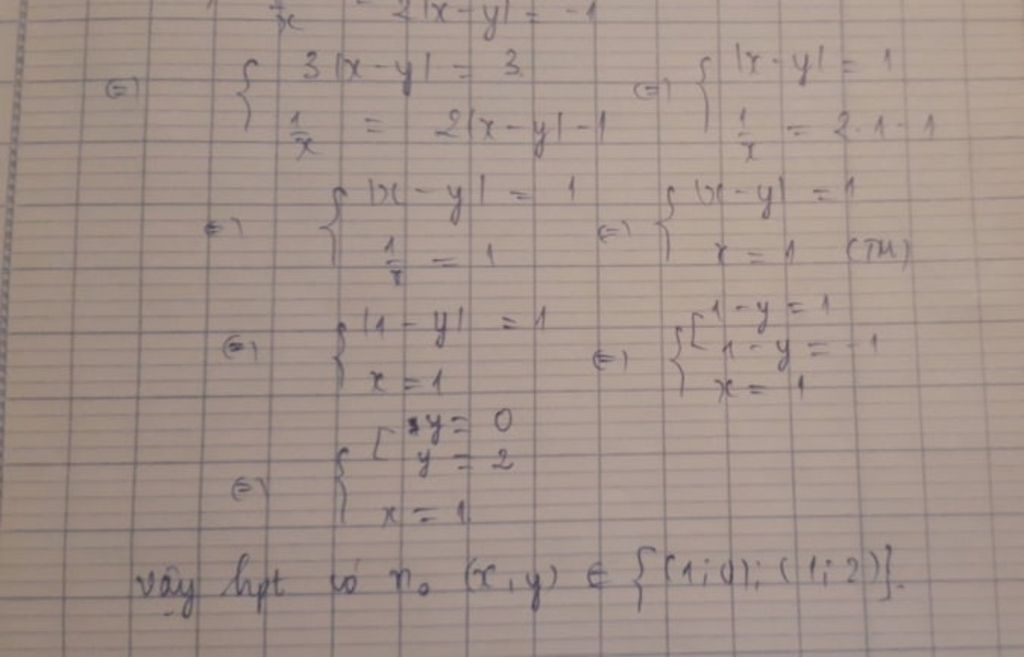 1/x - 2|x-y| = -1
(=) { 3|x-y| = 3 (=) { |x-y| = 1
1/x = 2|x-y| -1 1/x = 2.1-1
(=) { |x-y| = 1 (=) { |x-y| = 1
1/x = 1 x = 1 (TM)
(=) { |1-y| = 1 (=) { [ 1-y = 1
1-y = -1
x = 1 x = 1
(=) { [ y = 0
y = 2
x = 1
Vậy hpt có n₀ (x,y) ∈ {(1;0); (1;2)}.